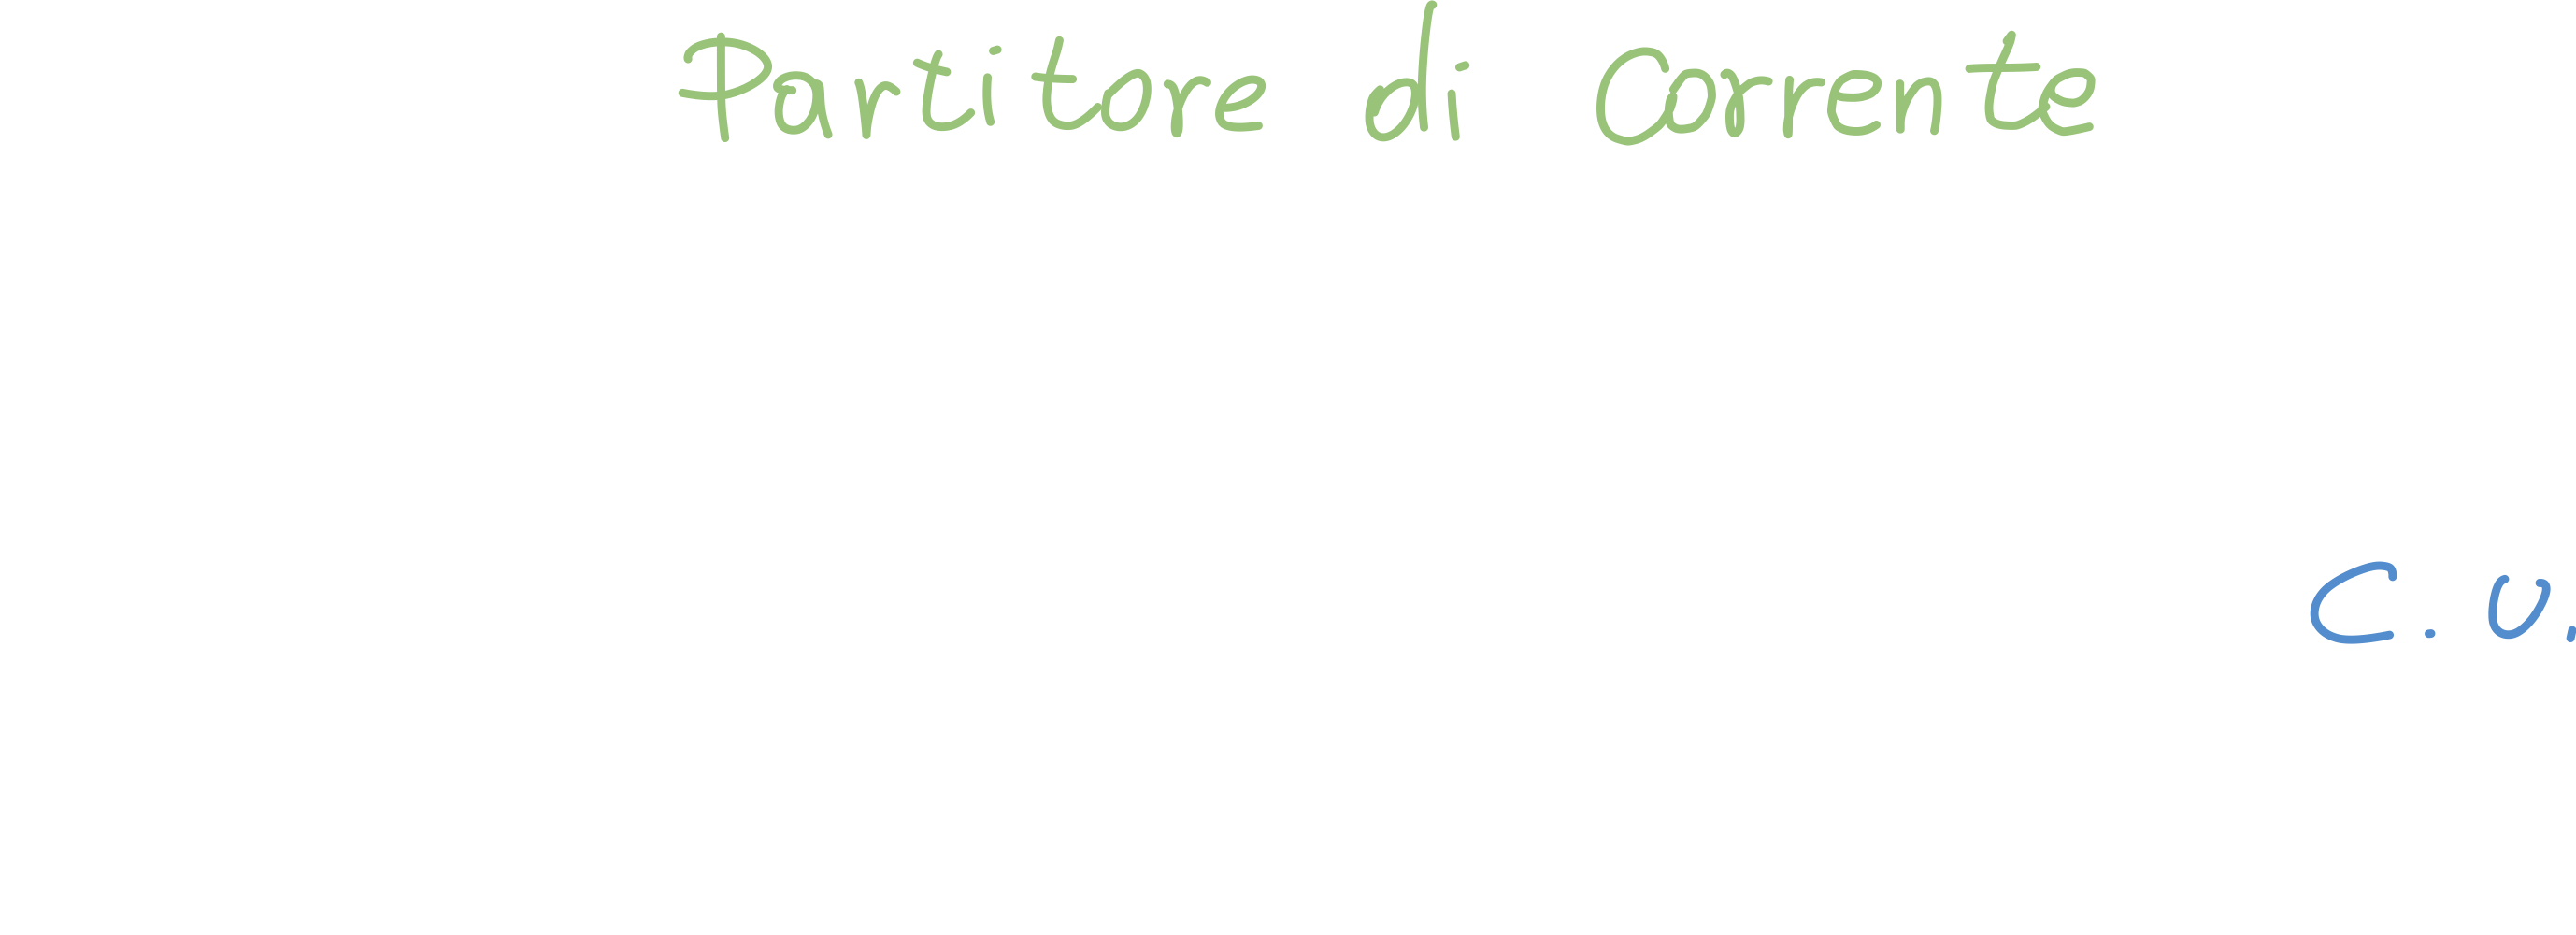 Partitore di Corrente
C. U.